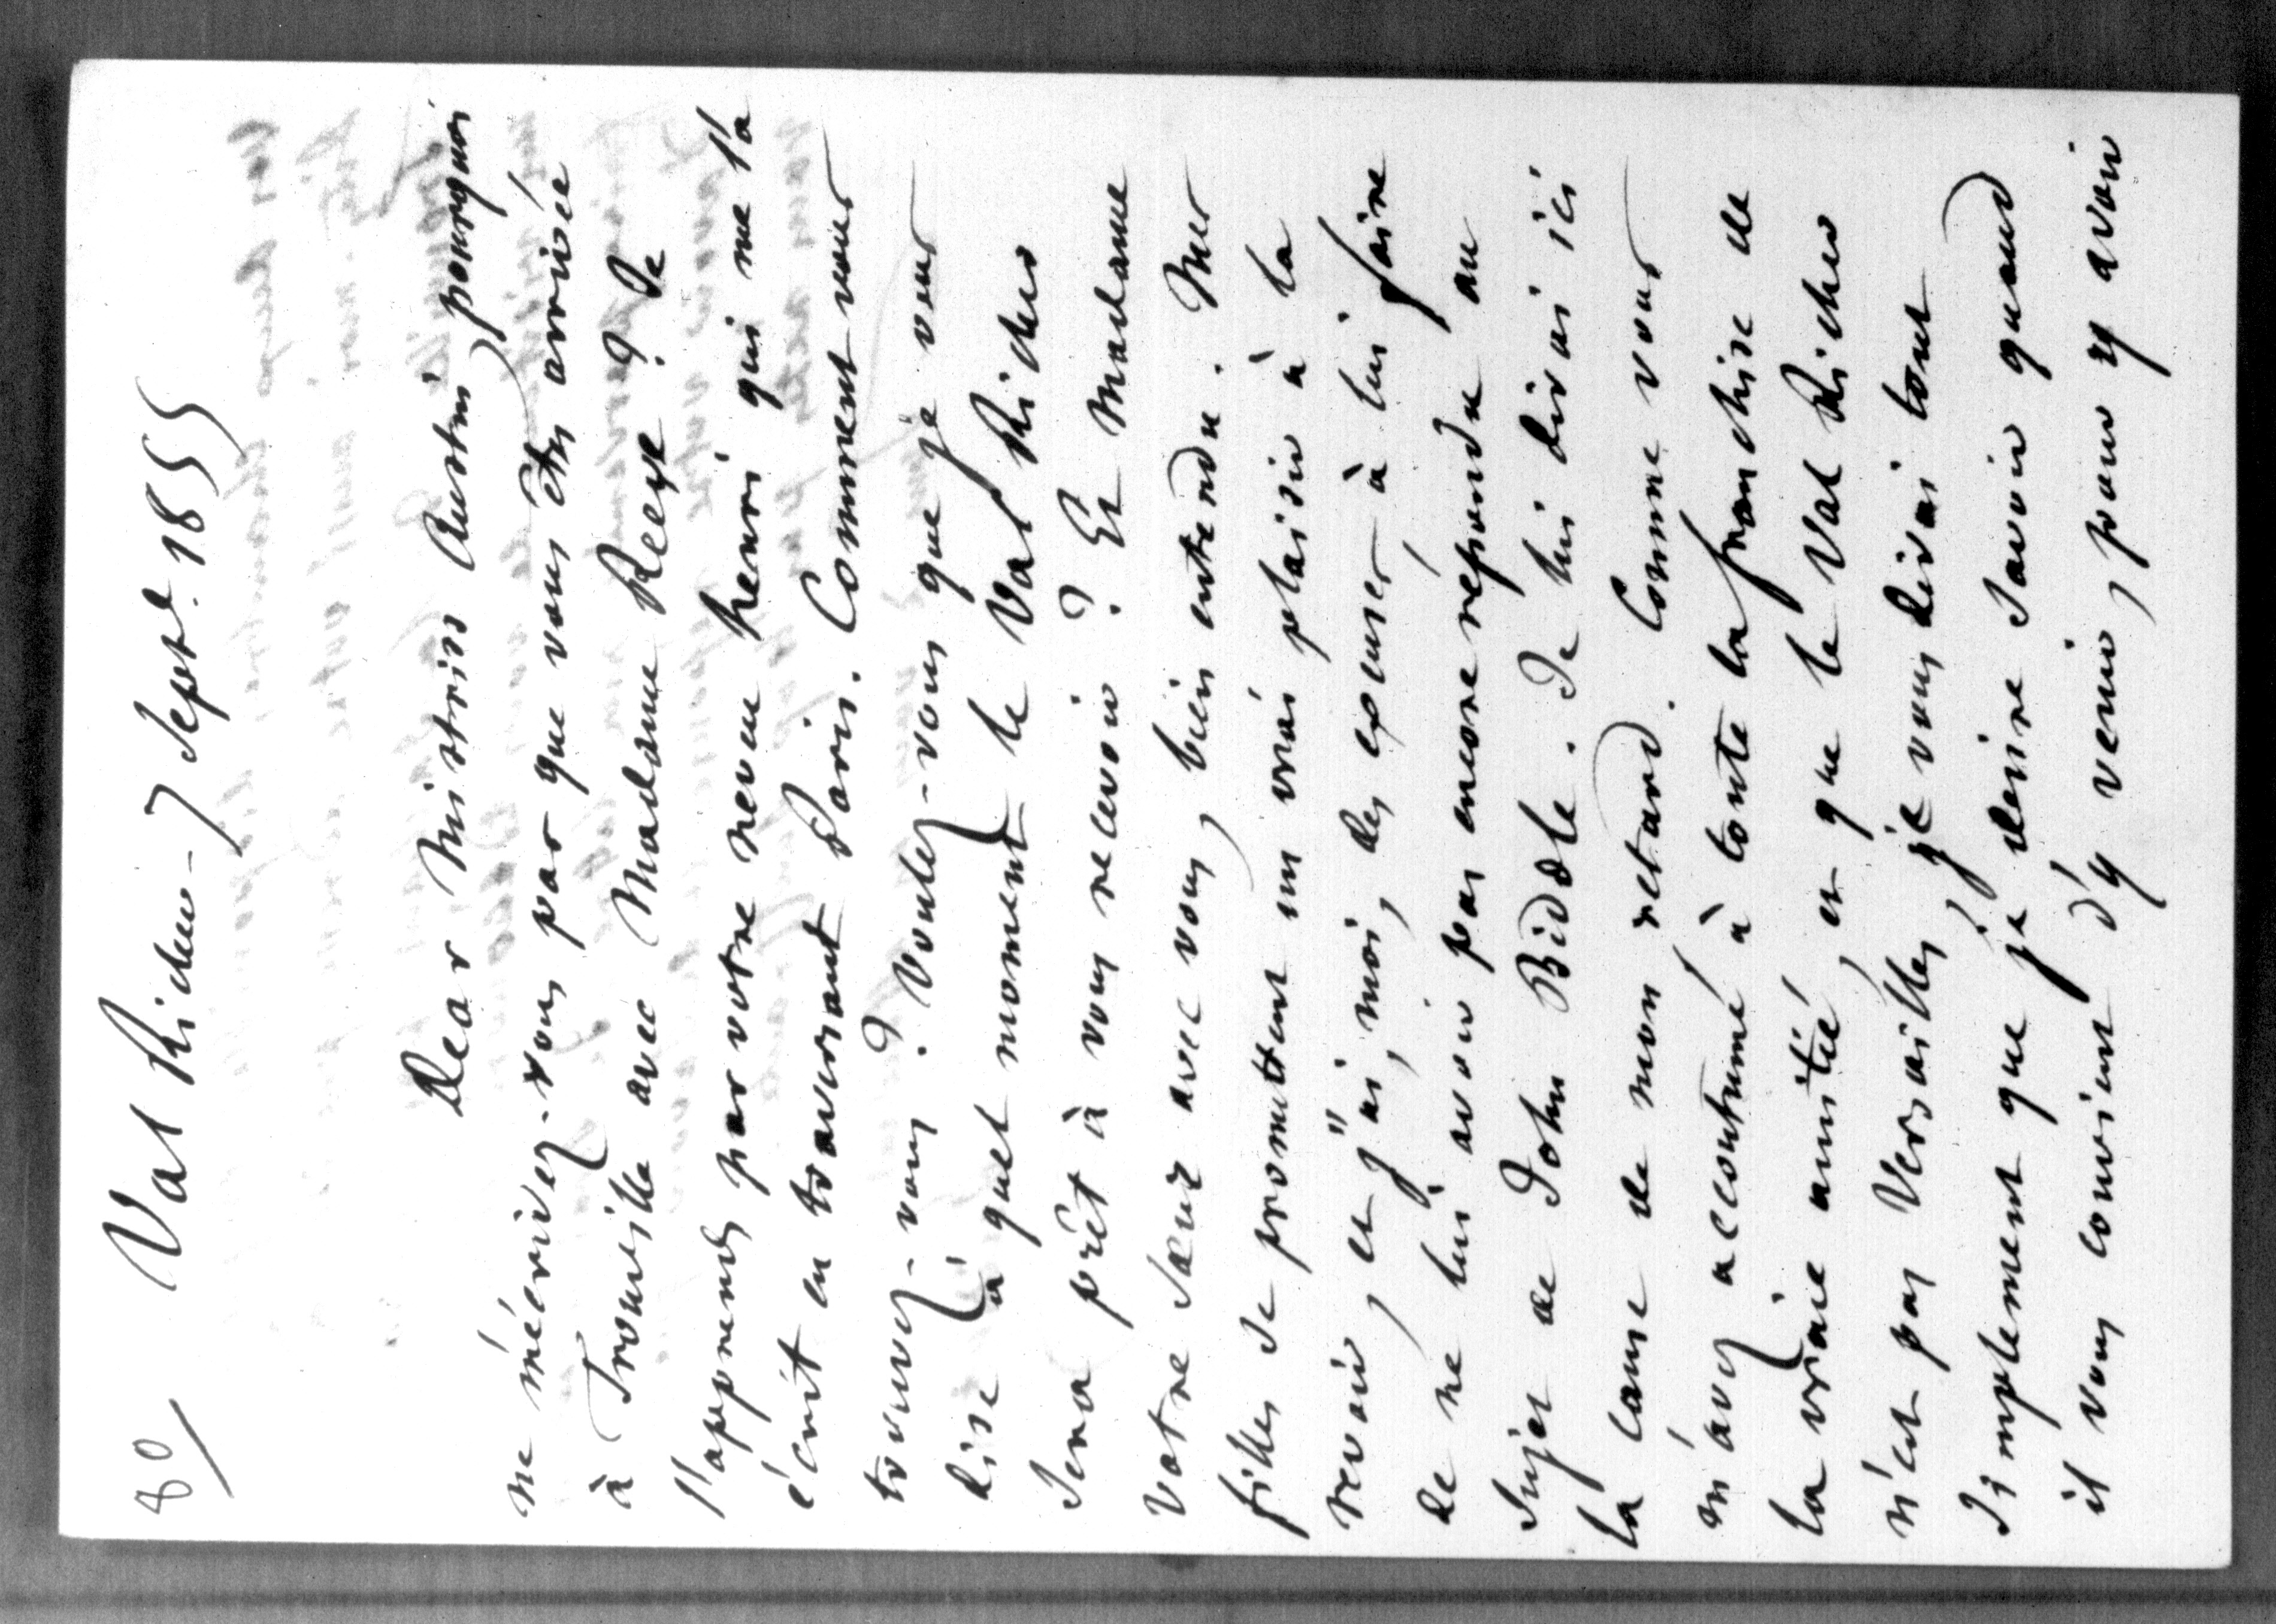 80/ Val Richer - 7 Sept. 1855
Dear Mistriss Austin, pourquoi
ne m'écrivez-vous pas que vous êtes arrivée
à Trouville avec Madame Reeve ? Je
l'apprends par votre neveu henri qui me l'a
écrit en traversant Paris. Comment vous
trouvez-vous ? Voulez-vous que je vous
dise à quel moment le Val Richer
sera prêt à vous recevoir ? Et Madame
votre soeur avec vous, bien entendu. Mes
filles se promettent un vrai plaisir à la
revoir, et j'ai, moi, des excuses à lui faire
de ne lui avoir pas encore répondu au
sujet de John Biddle. Je lui dirai ici
la cause de mon retard. Comme vous
m'avez accoutumé à toute la franchise de
la vraie amitié, et que le Val Richer
n'est pas Versailles, je vous dirai tout
simplement que je desire savoir quand
il vous convient d'y venir, pour y avoir